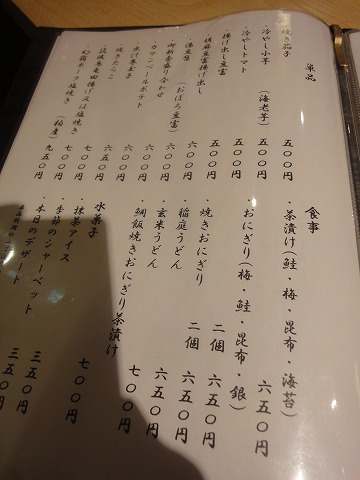 単品
焼き茄子 五〇〇円
冷やし小芋 (海老芋) 五〇〇円
冷やしトマト 五〇〇円
揚げ出し豆富 五〇〇円
胡麻豆富揚げ出し 五〇〇円
湯豆富 (おぼろ豆富) 六〇〇円
御新香盛り合わせ 六〇〇円
カマンベールポテト 六〇〇円
出汁巻玉子 六〇〇円
焼きたらこ 七〇〇円
筑波鳥竜田揚げ又は塩焼き 七〇〇円
幻霜ポーク塩焼き (稲庭) 九五〇円
食事
・茶漬け(鮭・梅・昆布・海苔) 六五〇円
・おにぎり(梅・鮭・昆布・銀) 二個 六五〇円
・焼きおにぎり 二個 六五〇円
・稲庭うどん 六五〇円
・玄米うどん 六五〇円
・鯛飯焼きおにぎり茶漬け 七〇〇円
水菓子
・抹茶アイス 七〇〇円
・季節のシャーベット 三五〇円
・本日のデザート 三五〇円